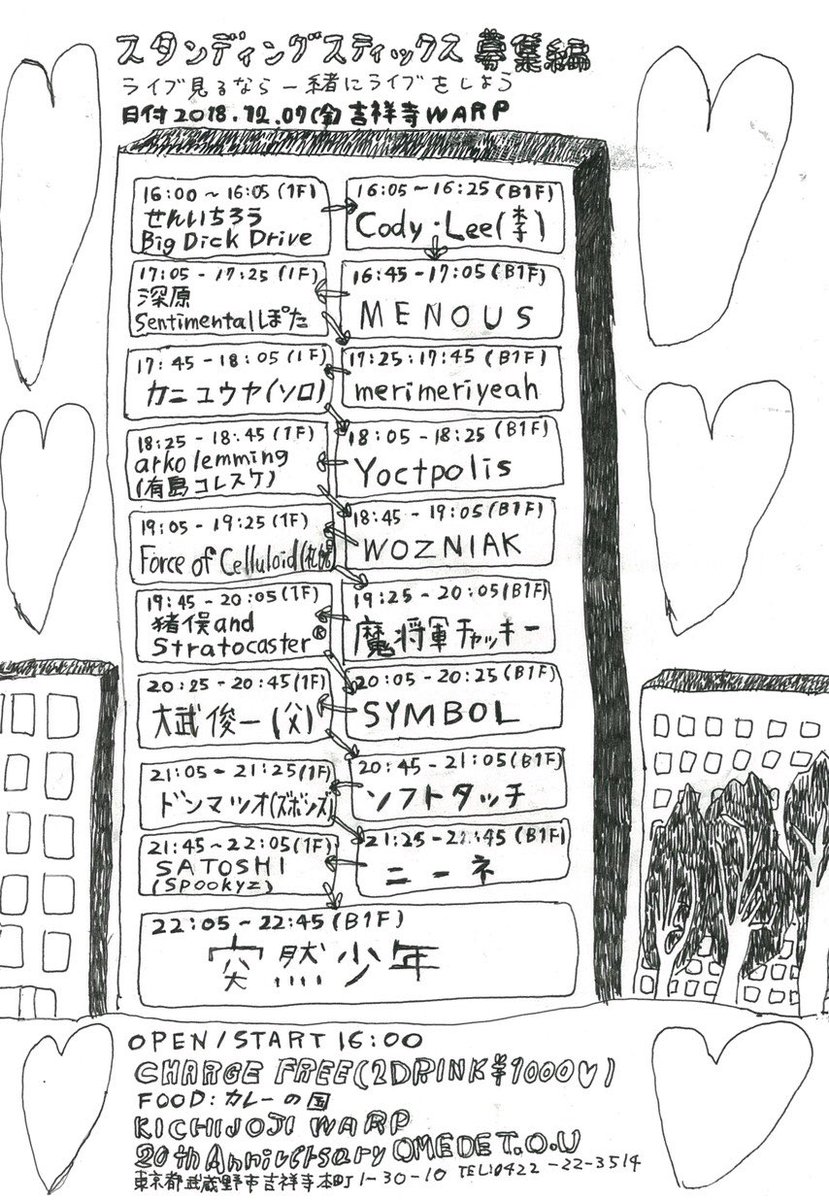 スタンディングスティックス 募集編
ライブ見るなら一緒にライブをしよう
日付2018.12.07(金)吉祥寺WARP
16:00～16:05(1F)
せんいちろう
Big Dick Drive
16:05～16:25(B1F)
Cody・Lee(李)
17:05-17:25(1F)
深原
Sentimentalぽた
16:45-17:05(B1F)
MENOUS
17:45-18:05(1F)
カニユウヤ(ソロ)
17:25:17:45(B1F)
merimeriyeah
18:25-18:45(1F)
arko lemming
(有島コレスケ)
18:05-18:25(B1F)
Yoctpolis
19:05-19:25(1F)
Force of Celluloid(札幌)
18:45-19:05(B1F)
WOZNIAK
19:45-20:05(1F)
猪俣and
Stratocaster®
19:25-20:05(B1F)
魔将軍チャッキー
20:25-20:45(1F)
大武俊一(父)
20:05-20:25(B1F)
SYMBOL
21:05-21:25(1F)
ドンマツオ(ズボンズ)
20:45-21:05(B1F)
ソフトタッチ
21:45～22:05(1F)
SATOSHI
(Spookyz)
21:25-21:45(B1F)
ニーネ
22:05-22:45(B1F)
突然少年
OPEN/START16:00
CHARGE FREE(2DRINK¥1000♡)
FOOD:カレーの国
KICHIJOJI WARP
20th Anniversary OMEDE T.O.U
東京都武蔵野市吉祥寺本町1-30-10 TEL:0422-22-3514